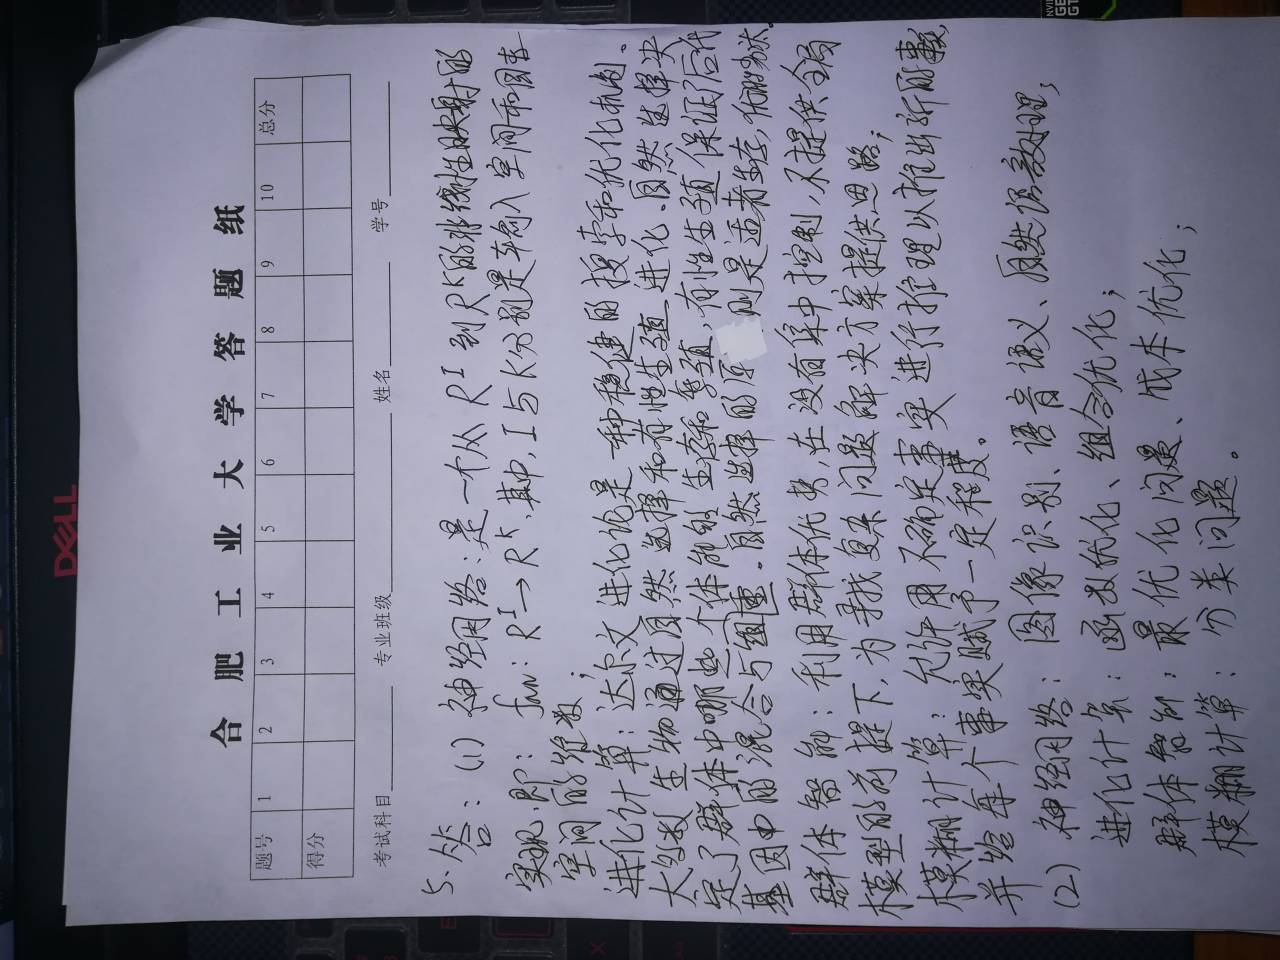 DELL
合肥工业大学答题纸
题号 1 2 3 4 5 6 7 8 9 10 总分
得分
考试科目 专业班级 姓名 学号
5. 答：(1) 神经网络：是一个从 R^I 到 R^K 的非线性映射的
实现，即： f_NN：R^I → R^K，其中，I与K分别是输入空间和
空间的维数；
进化计算：达尔文进化论是一种稳健的搜索和优化机制。
大多数生物通过自然选择和有性生殖进化。自然选择决
定了群体中哪些个体能够生存和繁殖，有性生殖保证了后代
基因中的混合与组重。自然选择的原则是适者生存，优胜劣汰。
群体智能：利用群体优势，在没有集中控制，不提供全局
模型的前提下，为寻找复杂问题解决方案提供思路；
模糊计算：允许用不确定事实进行推理以推出新的事实，
并给每个事实赋予一定程度。
(2) 神经网络：图像识别、语音语义、自然语言处理；
进化计算：函数优化、组合优化；
群体智能：最优化问题、成本优化；
模糊计算：分类问题。
NVI
GE
GT